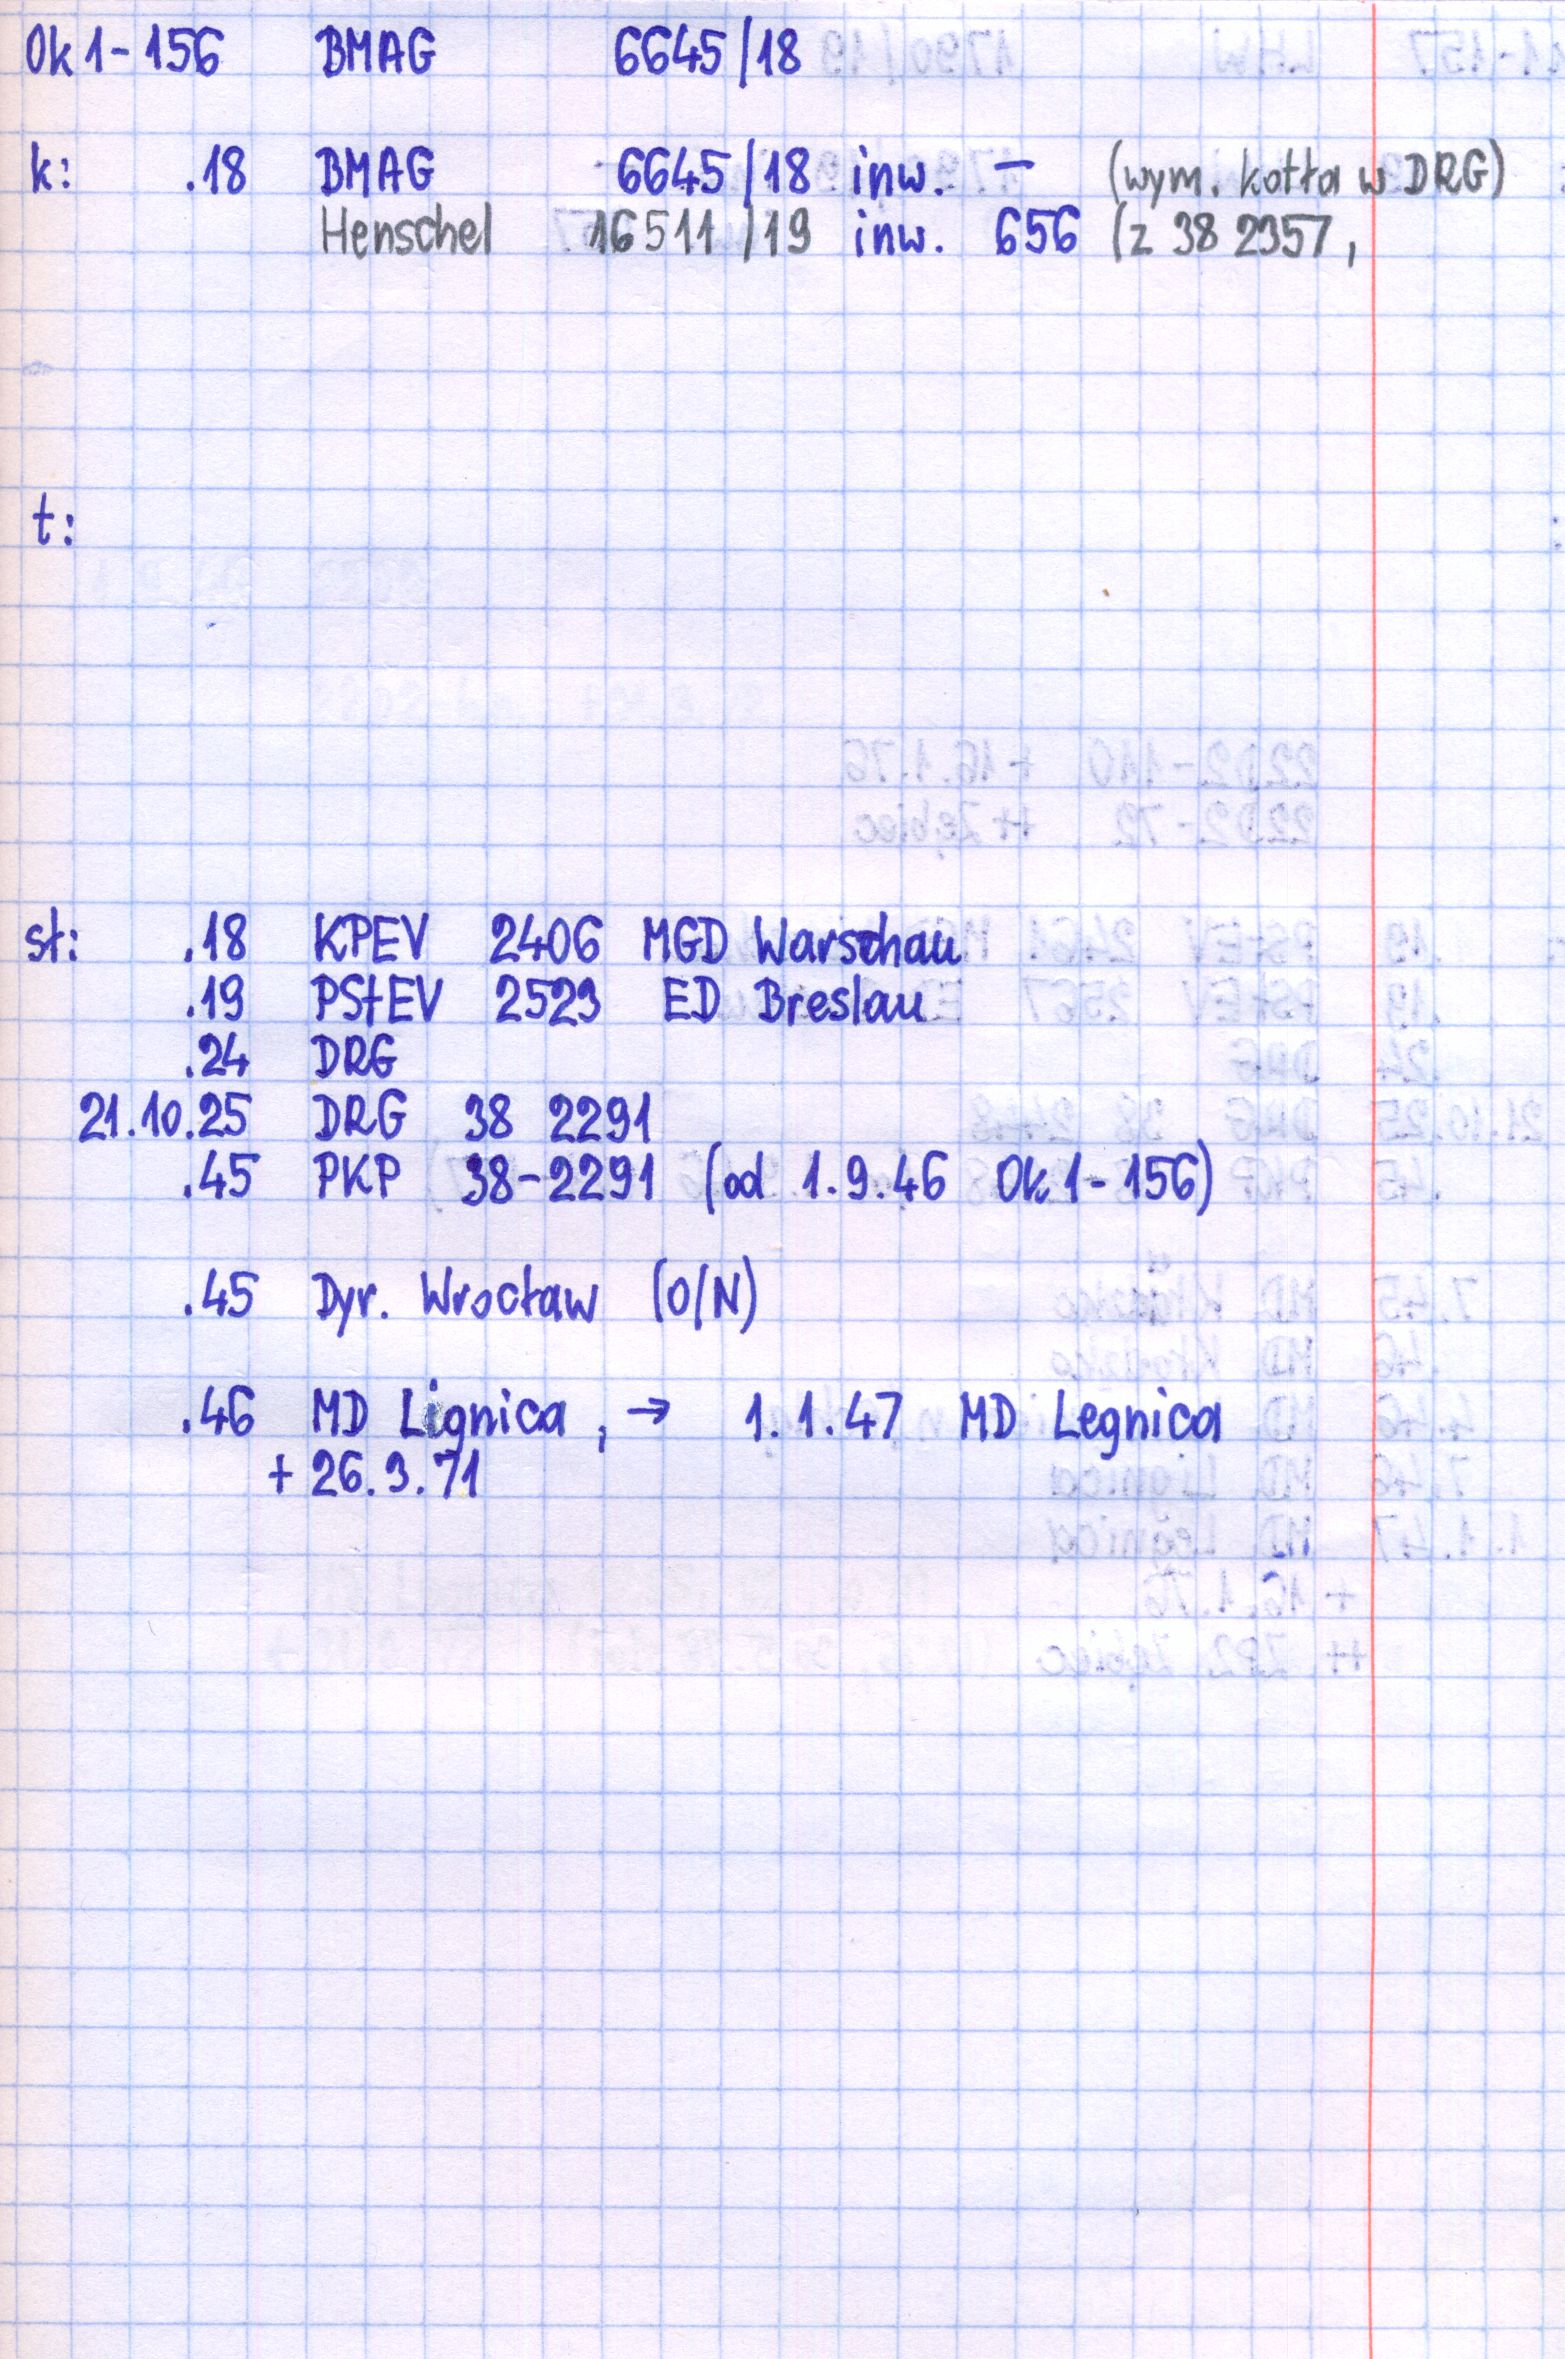 Ok1-156 BMAG 6645/18
k: .18 BMAG 6645/18 inw. - (wym. kotła w DRG)
Henschel 16511/19 inw. 656 (z 38 2357,
t:
sł: .18 KPEV 2406 MGD Warschau
.19 PStEV 2523 ED Breslau
.24 DRG
21.10.25 DRG 38 2291
.45 PKP 38-2291 (od 1.9.46 Ok1-156)
.45 Dyr. Wrocław (O/N)
.46 MD Lignica, → 1.1.47 MD Legnica
+ 26.3.71